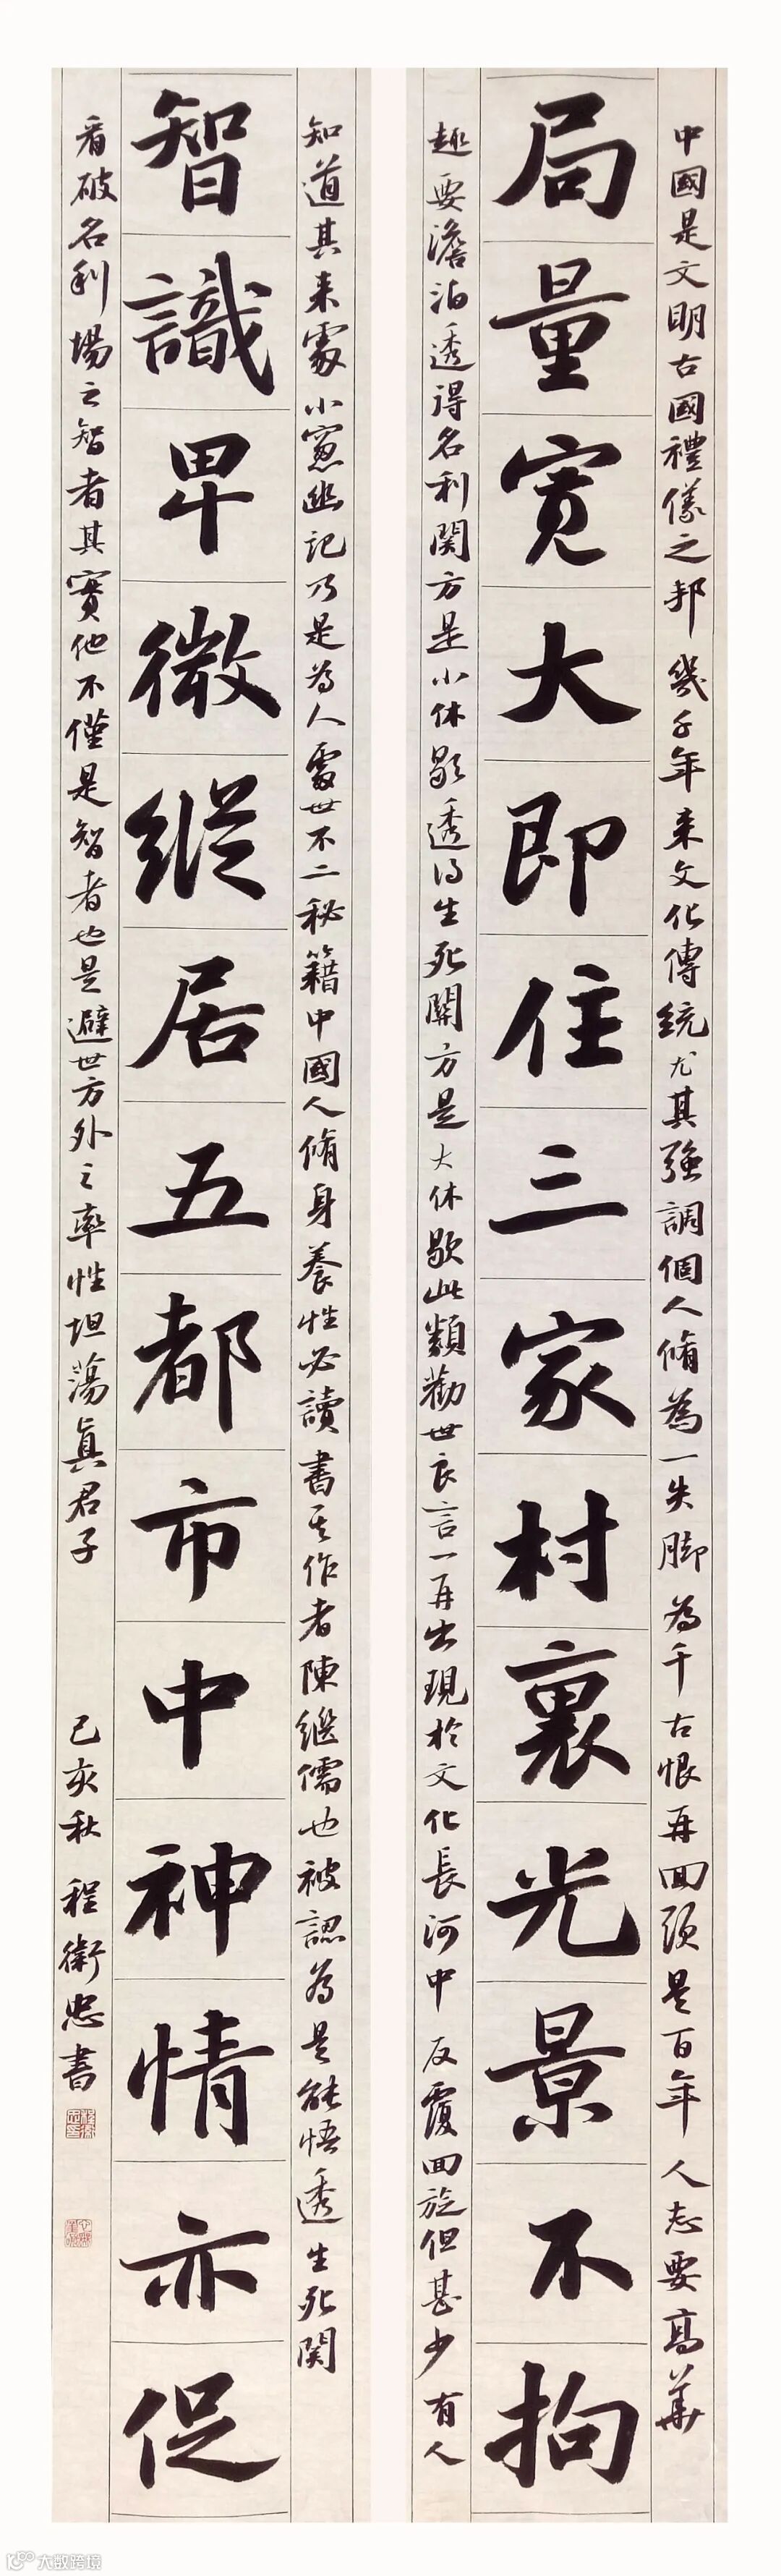 中國是文明古國禮儀之邦幾千年来文化傳統尤其強調個人脩為一失脚為千古恨再回頭是百年人志要高華
局量寬大即住三家村裏光景不拘
趣要澹泊透得名利関方是小休歇透得生死關方是大休歇此類勸世良言一再出現於文化長河中反覆回旋但甚少有人
知道其来處小窻幽記乃是為人處世不二秘籍中國人脩身養性必讀書其作者陳繼儒也被認為是能悟透生死関
智識卑微縱居五都市中神情亦促
看破名利場之智者其實他不僅是智者也是避世方外之率性坦蕩真君子
己亥秋 程衛忠書
大数跨境